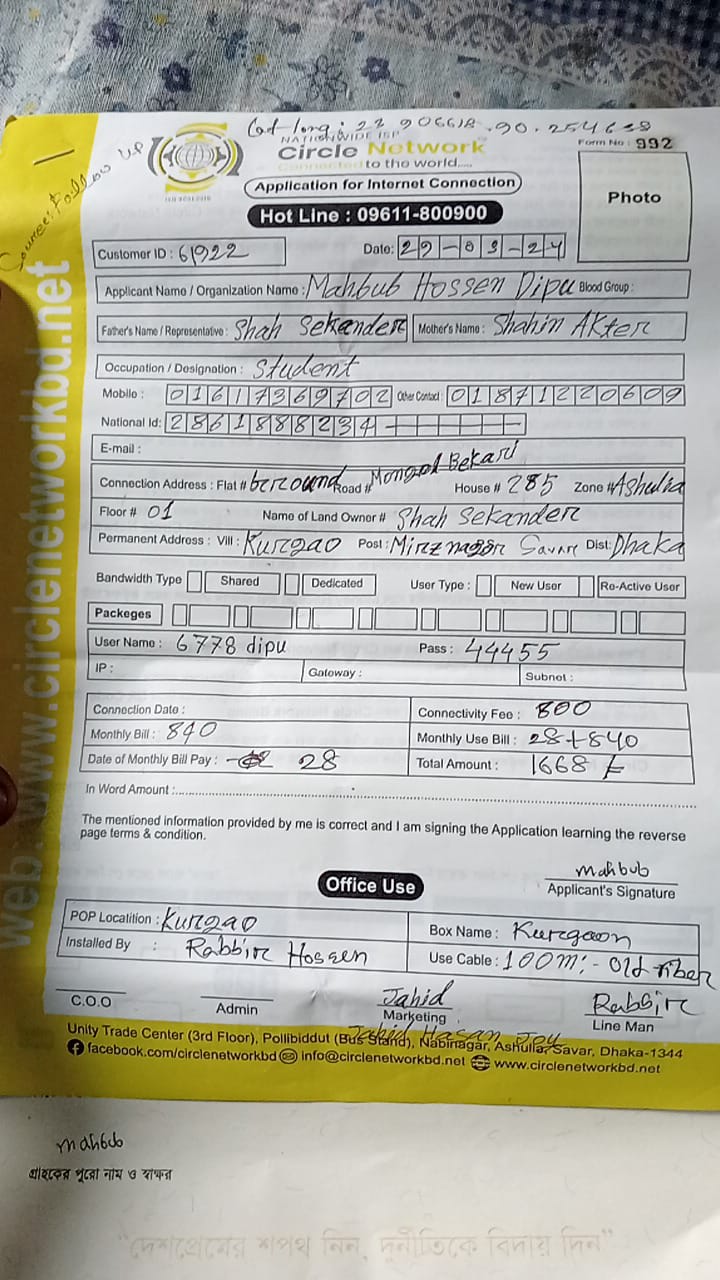 Lat-long: 23.906618.90.254638
Source: Follow UP
NATIONWIDE ISP
Circle Network
Connected to the world.....
Form No : 992
Application for Internet Connection
Photo
Hot Line : 09611-800900
Customer ID : 61922 Date: 29-03-24
Applicant Name / Organization Name : Mahbub Hossen Dipu Blood Group :
Father's Name / Representative : Shah Sekander Mother's Name : Shahin Akter
Occupation / Designation : Student
Mobile : 01617369702 Other Contact : 01871220609
National Id: 2861888234
E-mail :
Connection Address : Flat # Ground Road # Mongol Bekari House # 285 Zone # Ashulia
Floor # 01 Name of Land Owner # Shah Sekander
Permanent Address : Vill : Kurgao Post : Mirznagor Savar Dist: Dhaka
Bandwidth Type Shared Dedicated User Type : New User Re-Active User
Packeges
User Name : 6778 dipu Pass : 44455
IP : Gateway : Subnet :
Connection Date : Connectivity Fee : 800
Monthly Bill : 840 Monthly Use Bill : 28+840
Date of Monthly Bill Pay : 28 Total Amount : 1668/-
In Word Amount :
The mentioned information provided by me is correct and I am signing the Application learning the reverse
page terms & condition.
mahbub
Applicant's Signature
Office Use
POP Locatition : Kurgao Box Name : Kurgaon
Installed By : Rabbir Hossen Use Cable : 100m:- Old fiber
C.O.O Admin Jahid Marketing Rabbir Line Man
Jahid Hasan Joy
Unity Trade Center (3rd Floor), Pollibiddut (Bus Stand), Nabinagar, Ashulia, Savar, Dhaka-1344
facebook.com/circlenetworkbd info@circlenetworkbd.net www.circlenetworkbd.net
web: www.circlenetworkbd.net
mahbub
গ্রাহকের পুরো নাম ও স্বাক্ষর
"দেশপ্রেমের শপথ নিন, দুর্নীতিকে বিদায় দিন"